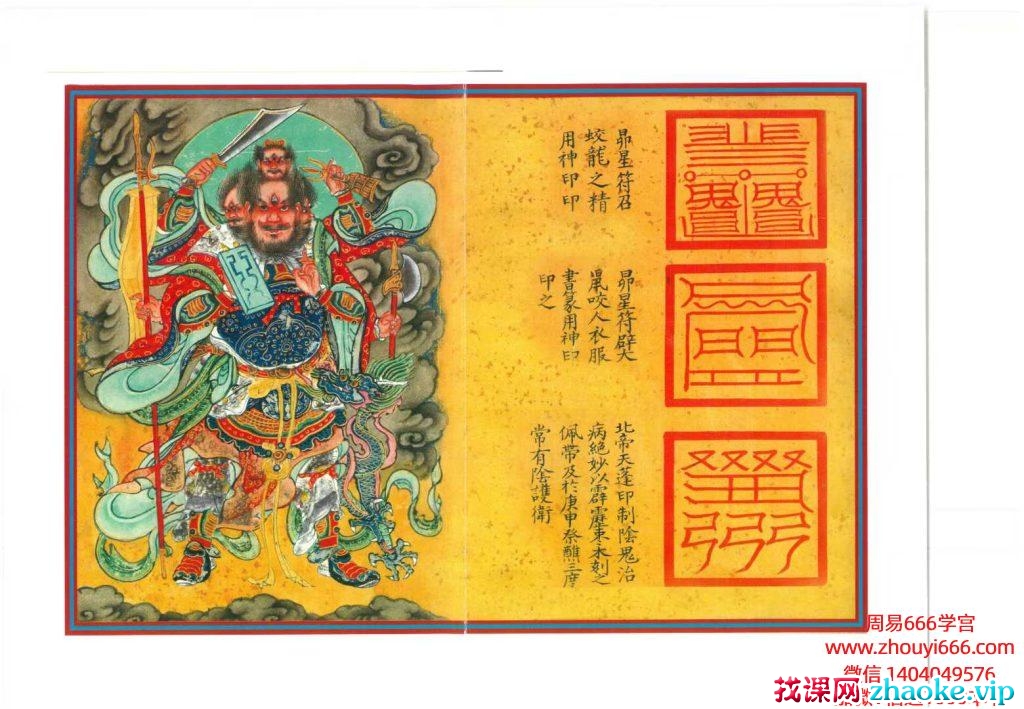 昴星符召
蛟龍之精
用神印印
昴星符辟大
鼠咬人衣服
書篆用神印
印之
北帝天蓬印制陰鬼治
病絶妙以霹靂棗木刻之
佩帶及於庚申祭醮三度
常有陰護衛
周易666学宫
www.zhouyi666.com
微信 1404049576
找课网zhaoke.vip